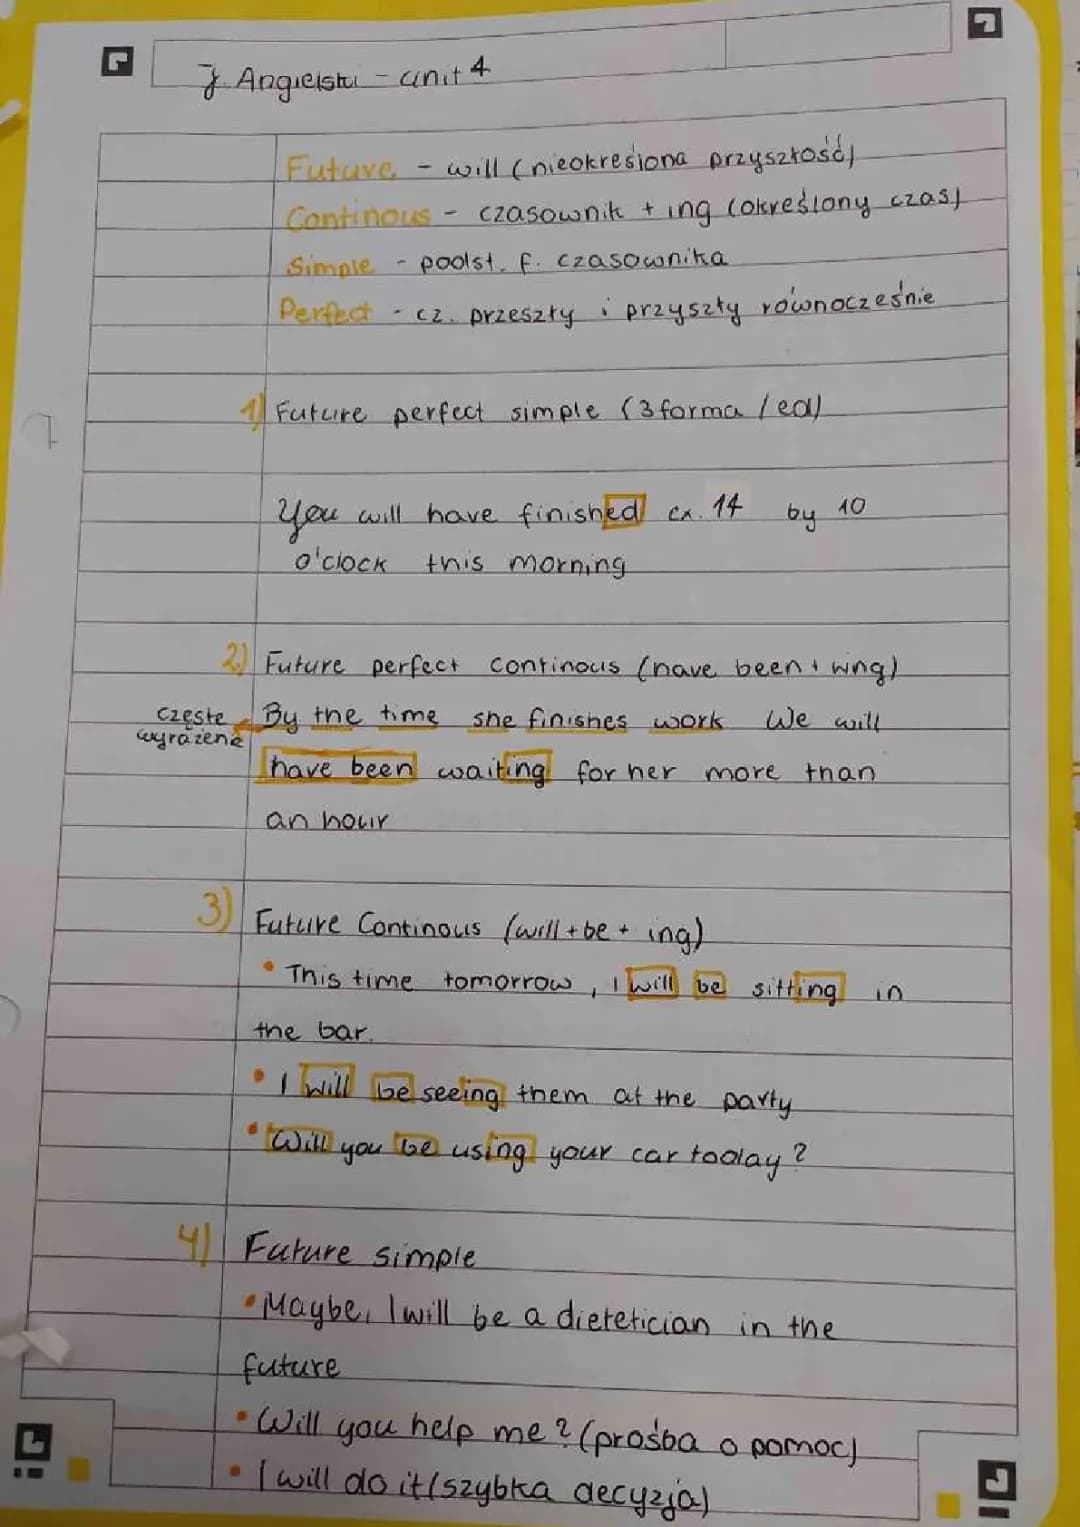 j. Angielski - unit 4
Future - will (nieokreślona przyszłość)
Continous - czasownik + ing (określony czas)
Simple - podst. f. czasownika
Perfect - cz. przeszły i przyszły równocześnie
1) Future perfect simple (3 forma / ed)
You will have finished ex. 14 by 10
o'clock this morning
2) Future perfect continous (have been + wing)
częste
wyrażenie
By the time she finishes work We will
have been waiting for her more than
an hour
3) Future Continous (will + be + ing)
• This time tomorrow, I will be sitting in
the bar.
• I will be seeing them at the party
• Will you be using your car today?
4) Future simple
• Maybe, I will be a dietetician in the
future
• Will you help me? (prośba o pomoc)
• I will do it (szybka decyzja)